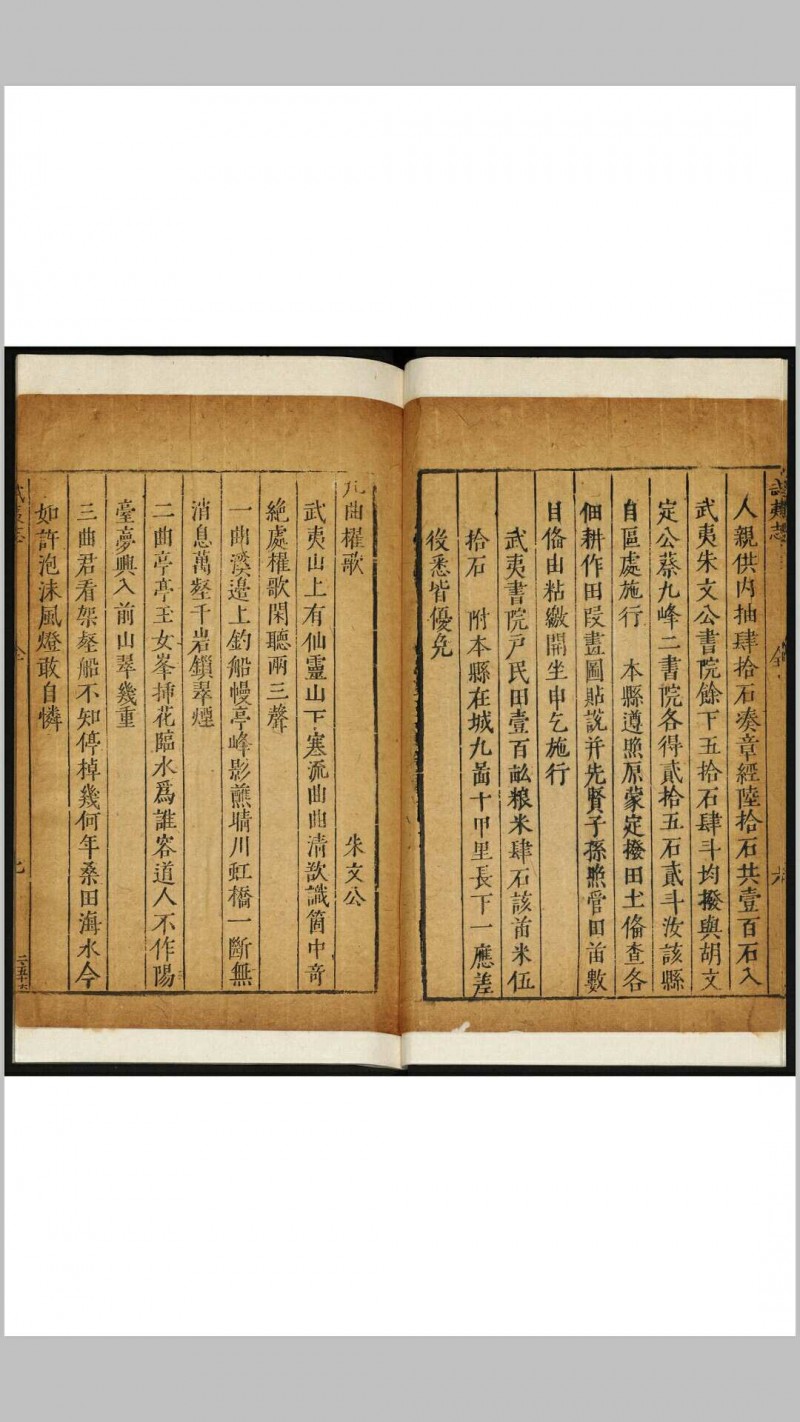 人親供内抽肆拾石湊章經陸拾石共壹百石入
武夷朱文公書院餘下五拾石肆斗均撥與胡文
定公蔡九峰二書院各得貳拾五石貳斗汝該縣
自區處施行　本縣遵照原蒙定撥田土俻查各
佃耕作田段畫圖貼說并先賢子孫照管田畝數
目俻由粘繳開坐申乞施行
武夷書院戶民田壹百畝粮米肆石該苗米伍
拾石　附本縣在城九啚十甲里長下一應差
後悉皆優免
九曲櫂歌　朱文公
武夷山上有仙靈山下寒流曲曲清欲識箇中竒
絶處櫂歌閑聽兩三聲
一曲溪邉上釣船幔亭峰影蘸晴川虹橋一斷無
消息萬壑千岩鎖翠煙
二曲亭亭玉女峯揷花臨水爲誰容道人不作陽
臺夢興入前山翠幾重
三曲君看架壑船不知停棹幾何年桑田海水今
如許泡沫風燈敢自憐